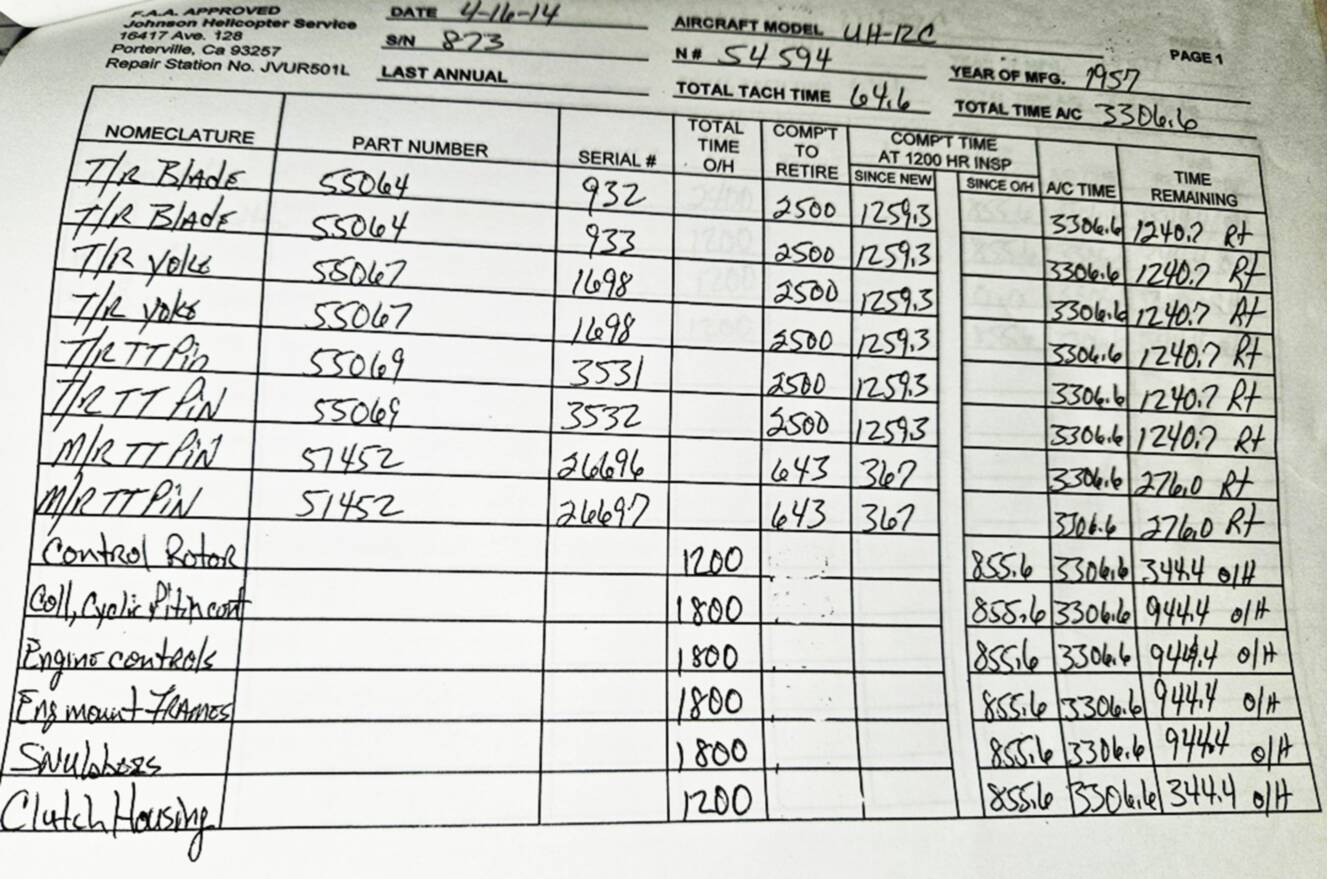 F.A.A. APPROVED
Johnson Helicopter Service
16417 Ave. 128
Porterville, Ca 93257
Repair Station No. JVUR501L
DATE 4-16-14
S/N 873
LAST ANNUAL
AIRCRAFT MODEL UH-12C
N# 54594
TOTAL TACH TIME 64.6
PAGE 1
YEAR OF MFG. 1957
TOTAL TIME A/C 3306.6
NOMECLATURE PART NUMBER SERIAL # TOTAL TIME O/H COMP'T TO RETIRE COMP'T TIME AT 1200 HR INSP SINCE NEW SINCE O/H A/C TIME TIME REMAINING
T/R Blade 55064 932 2500 1259.3 3306.6 1240.7 Rt
T/R Blade 55064 933 2500 1259.3 3306.6 1240.7 Rt
T/R yoke 55067 1698 2500 1259.3 3306.6 1240.7 Rt
T/R yoke 55067 1698 2500 1259.3 3306.6 1240.7 Rt
T/R TT Pin 55069 3531 2500 1259.3 3306.6 1240.7 Rt
T/R TT PiN 55069 3532 2500 1259.3 3306.6 1240.7 Rt
M/R TT PiN 51452 26696 643 367 3306.6 276.0 Rt
M/R TT PiN 51452 26697 643 367 3306.6 276.0 Rt
Control Rotor 1200 855.6 3306.6 344.4 o/H
Coll, Cyclic Pitch cont 1800 855.6 3306.6 944.4 o/H
Engine controls 1800 855.6 3306.6 944.4 o/H
Eng mount FRAMES 1800 855.6 3306.6 944.4 o/H
1800 855.6 3306.6 944.4 o/H
Clutch Housing 1200 855.6 3306.6 344.4 o/H